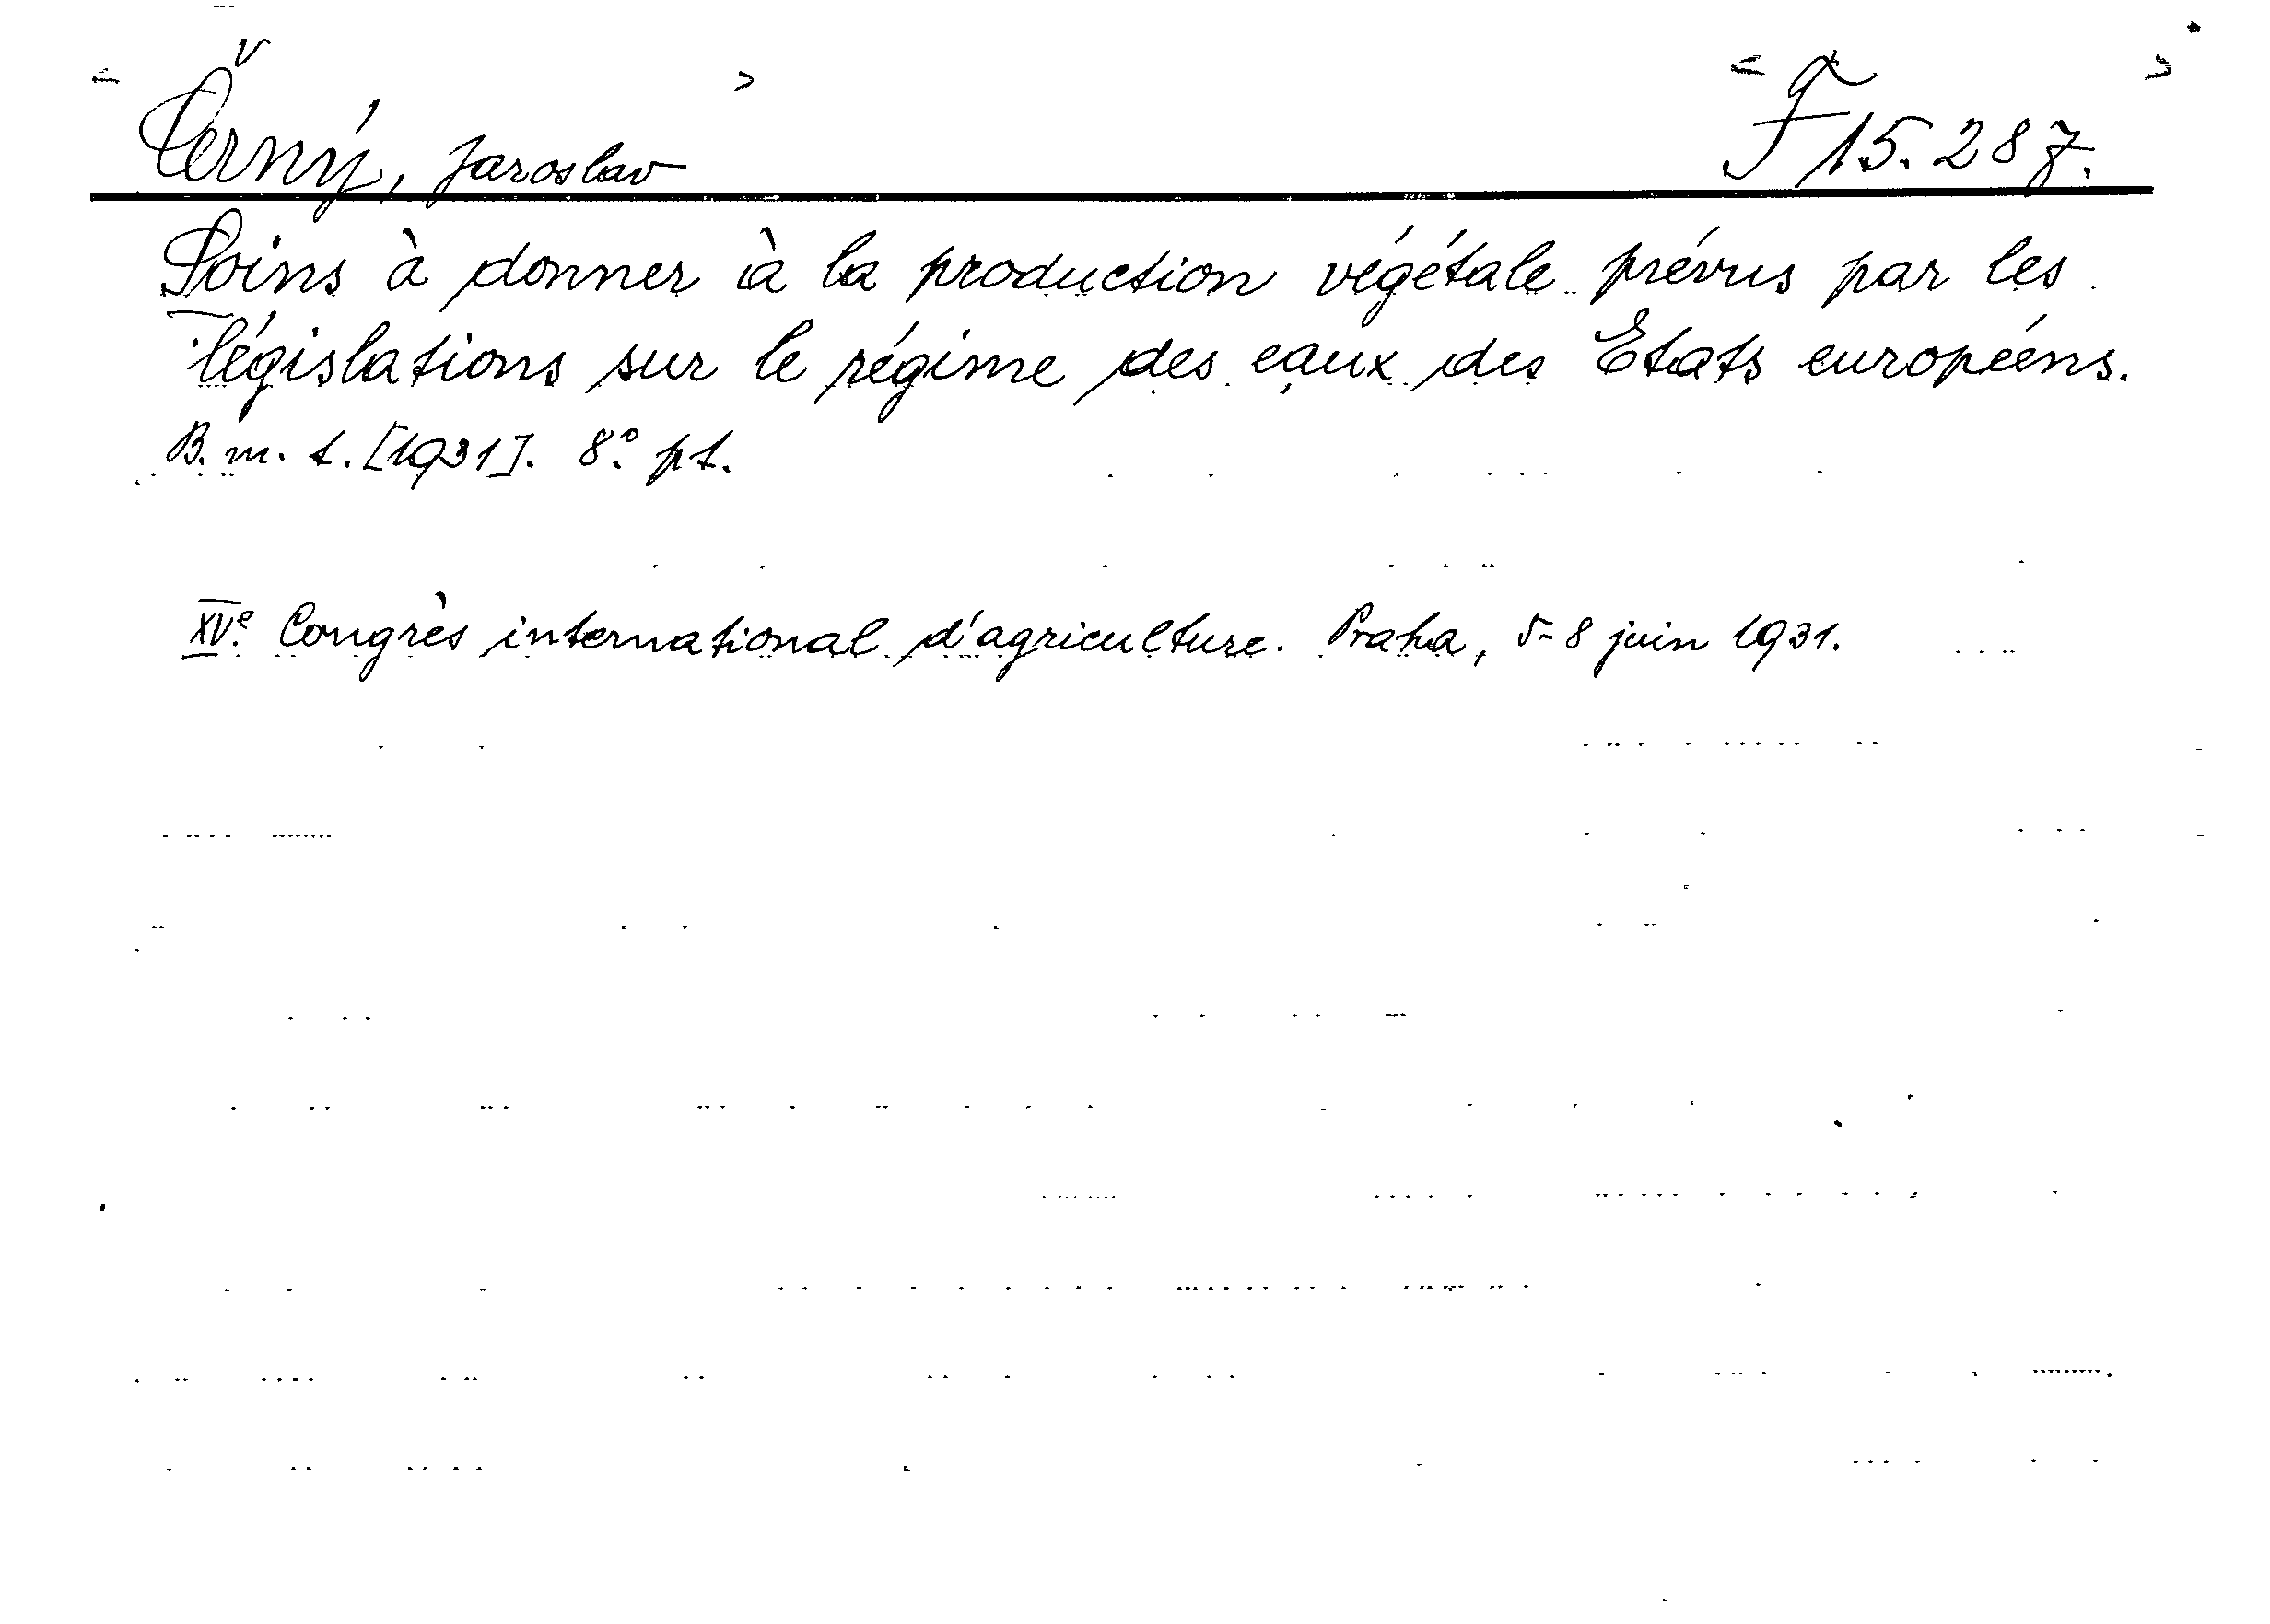 Černý, Jaroslav F 15.287.
Soins à donner à la production végétale prévus par les
législations sur le régime des eaux des Etats européens.
B. m. t. [1931]. 8° pt.
XVe Congrès international d'agriculture. Praha, 5-8 juin 1931.